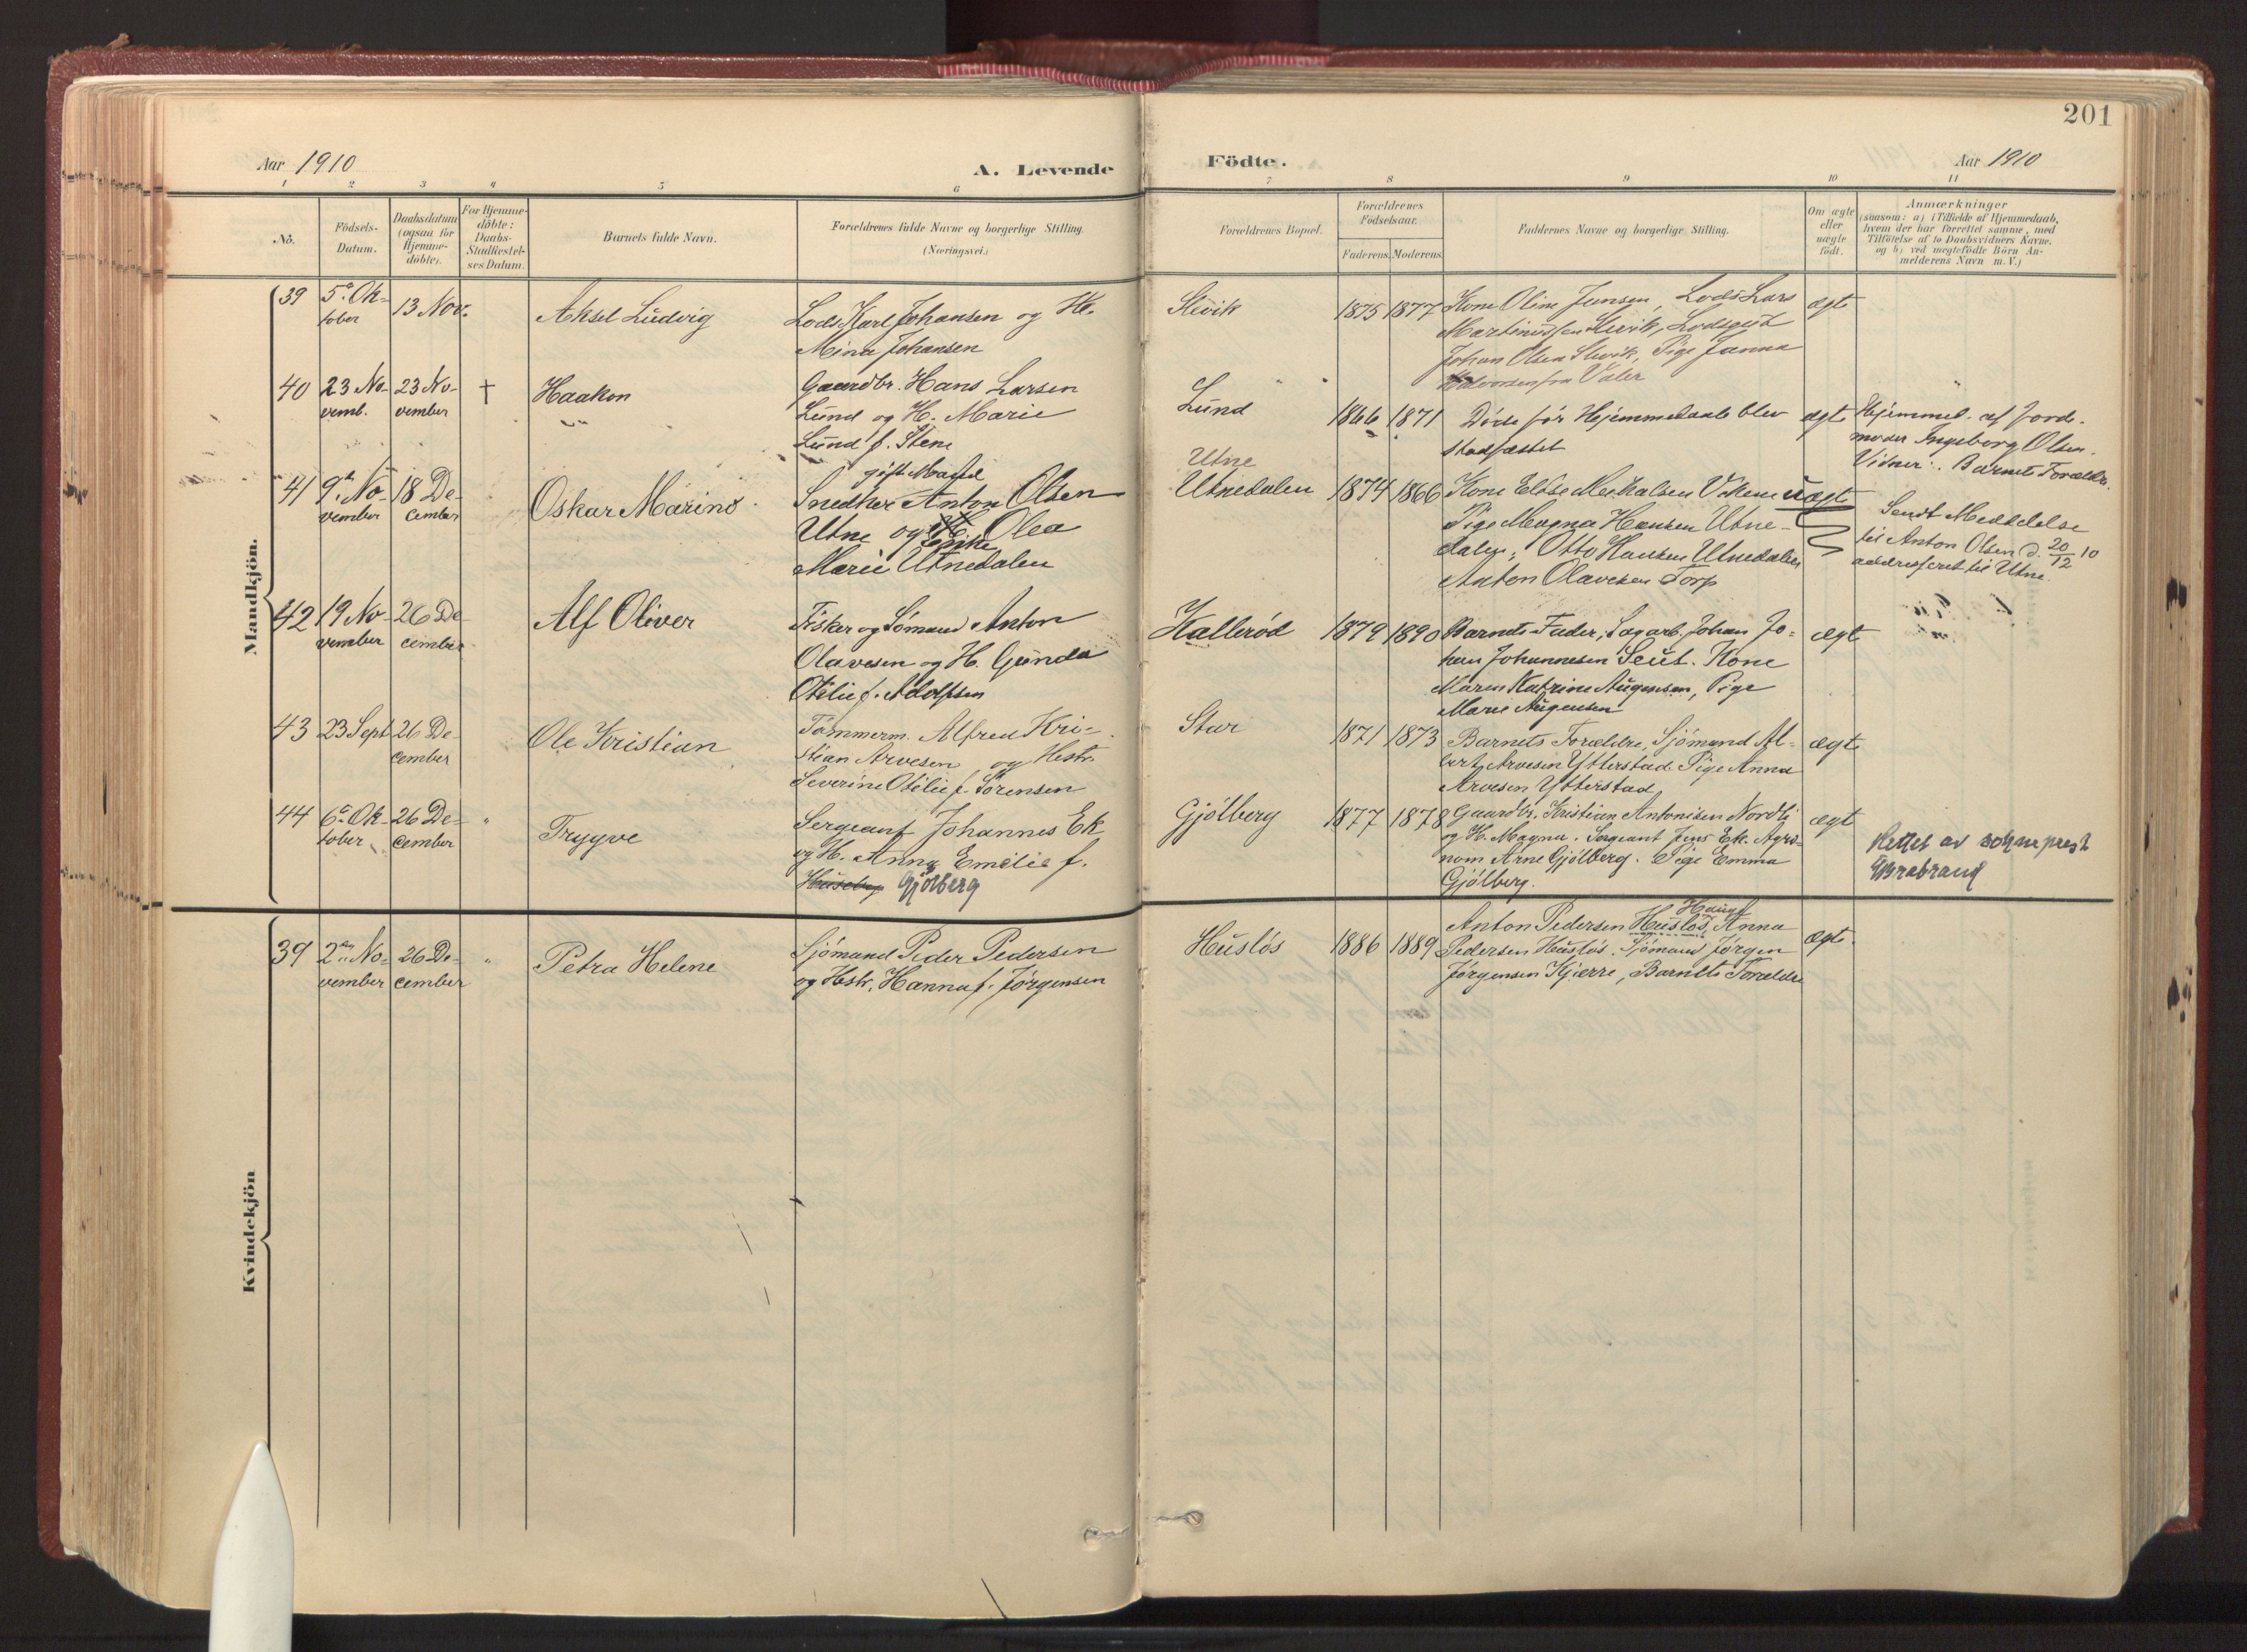 201
Aar 1910
A. Levende
Födte.
Aar 1910
1 2 3 4 5 6 7 8 9 10 11
No.
Födsels-
Datum.
Daabsdatum
(ogsaa for
Hjemme-
döbte).
For Hjemme-
döbte:
Daabs-
Stadfæstel-
ses Datum.
Barnets fulde Navn.
Forældrenes fulde Navne og borgerlige Stilling.
(Næringsvei.)
Forældrenes Bopæl.
Forældrenes
Födselsaar.
Faderens. Moderens.
Faddernes Navne og borgerlige Stilling.
Om ægte
eller
uægte
födt.
Anmærkninger
(saasom: a) i Tilfælde af Hjemmedaab,
hvem der har forrettet samme, med
Tilföielse af to Daabsvidners Navne.
og b) ved uægtefödte Börn An-
melderens Navn m. V.)
Mandkjön.
39
5te Ok-
tober
13 Nov.
Aksel Ludvig
Lods Karl Johansen og H.
Mina Johansen
Slevik
1875 1877
Kone Oline Jensen, Lods Lars
Martinussen Slevik, Lodsgut
Johan Olsen Slevik, Pige Janna
Halvorsen fra Valer
ægte
40
23 No-
vemb.
23 No-
vember
†
Haakon
Gaardbr. Hans Larsen
Lund og H. Marie
Lund f. Stene
Lund
1866 1871
Döde för Hjemmedaab blev
stadfæstet
ægte
Hjemmed. af Jord-
moder Ingeborg Olsen.
Vidner: Barnets Forældr.
41
9de No-
vember
18 De-
cember
Oskar Marino
gift Mand
Snedker Anton Olsen
Utne og Enke Olea
Marie Utnedalen
Utne
Utnedalen
1874 1866
Kone
Pige Magna Hansen Utne-
dalen, Otto Hansen Utnedalen
Anton Olavesen Torp
uægte
Sendt Meddelse
til Anton Olsen d. 20/12 10
addresseret til Utne.
42
19 No-
vember
26 De-
cember
Alf Oliver
Fisker og Sömand Anton
Olavesen og H. Gunda
Otilie f. Adolfsen
Kallerød
1879 1890
Barnets Fader, Sagarb. Johan Jo-
han Johannesen Seut. Kone
Maren Katrine Augensen, Pige
Marie Augensen
ægte
43
23 Sept
26 De-
cember
Ole Kristian
Tömmerm. Alfred Kri-
stian Arvesen og Hustr.
Severine Otilie f. Sörensen
Stur
1871 1873
Barnets Forældre, Sjömand Al-
bert Arvesen Ytterstad Pige Anna
Arvesen Ytterstad
ægte
44
6te Ok-
tober
26 De-
cember
"
Trygve
Sergeant Johannes Ek
og H. Anna Emilie f.
Huseby Gjölberg
Gjölberg
1877 1878
Gaardbr. Kristian Antonisen Nordli
og H. Magna. Sergeant Jens Ek. Agro-
nom Arne Gjölberg. Pige Emma
Gjölberg.
ægte
Rettet av sokneprest
Brabrand
Kvindekjön
39
2den No-
vember
26 De-
cember
"
Petra Helene
Sjömand Peder Pedersen
og Hstr. Hanna f. Jörgensen
Huslös
1886 1889
Hauge
Anton Pedersen Huslös, Anna
Pedersen Huslös. Sjömand Jörgen
Jörgensen Kjærre, Barnets Forældre
ægte.